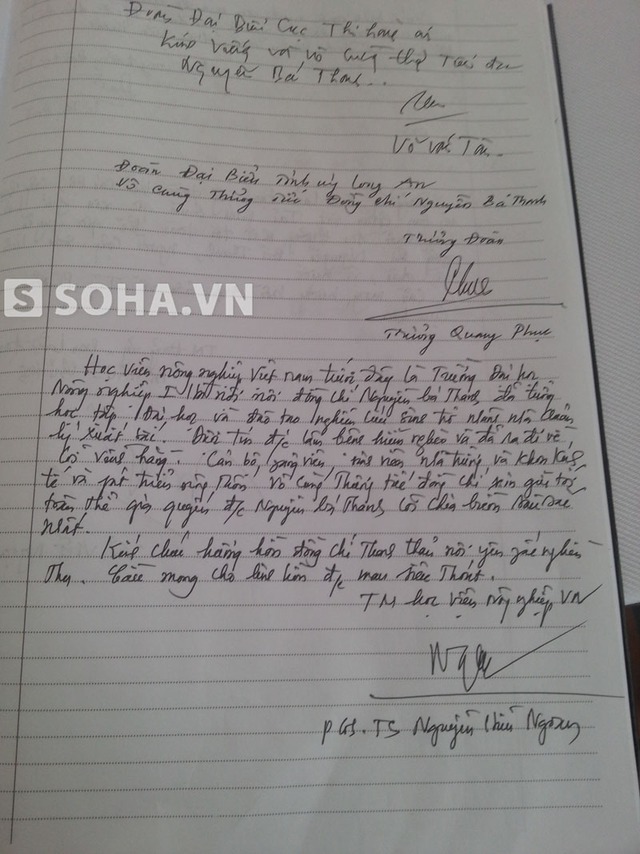 Đoàn Đại Biểu Cục Thi hành án
Kính viếng và vô cùng thương Tiếc đ/c
Nguyễn Bá Thanh..
Võ Văn
Đoàn Đại Biểu Tỉnh ủy Long An
Vô cùng Thương Tiếc Đồng chí Nguyễn Bá Thanh
Trưởng Đoàn
Phuc
S SOHA.VN
Trương Quang Phục
Học viện nông nghiệp Việt nam trước đây là Trường Đại học
Nông nghiệp I nơi đồng chí Nguyễn bá Thanh đã từng
học tập Đại học và đào tạo nghiên cứu sinh trở thành nhà
lý xuất sắc. tin đ/c lâm bệnh hiểm nghèo và đã ra đi về
cõi vĩnh hằng. Cán bộ, giảng viên, sinh viên nhà trường và Khoa Kinh
tế và phát triển nông thôn vô cùng Thương tiếc đồng chí xin gửi tới
toàn thể gia quyến đ/c Nguyễn bá Thanh lời chia buồn sâu sắc
nhất.
Kính chúc hương hồn đồng chí Thanh nơi yên giấc nghìn
Thu. Cầu mong cho linh hồn đ/c mau siêu Thoát.
TM học viện Nông nghiệp VN
PGS. TS Nguyễn